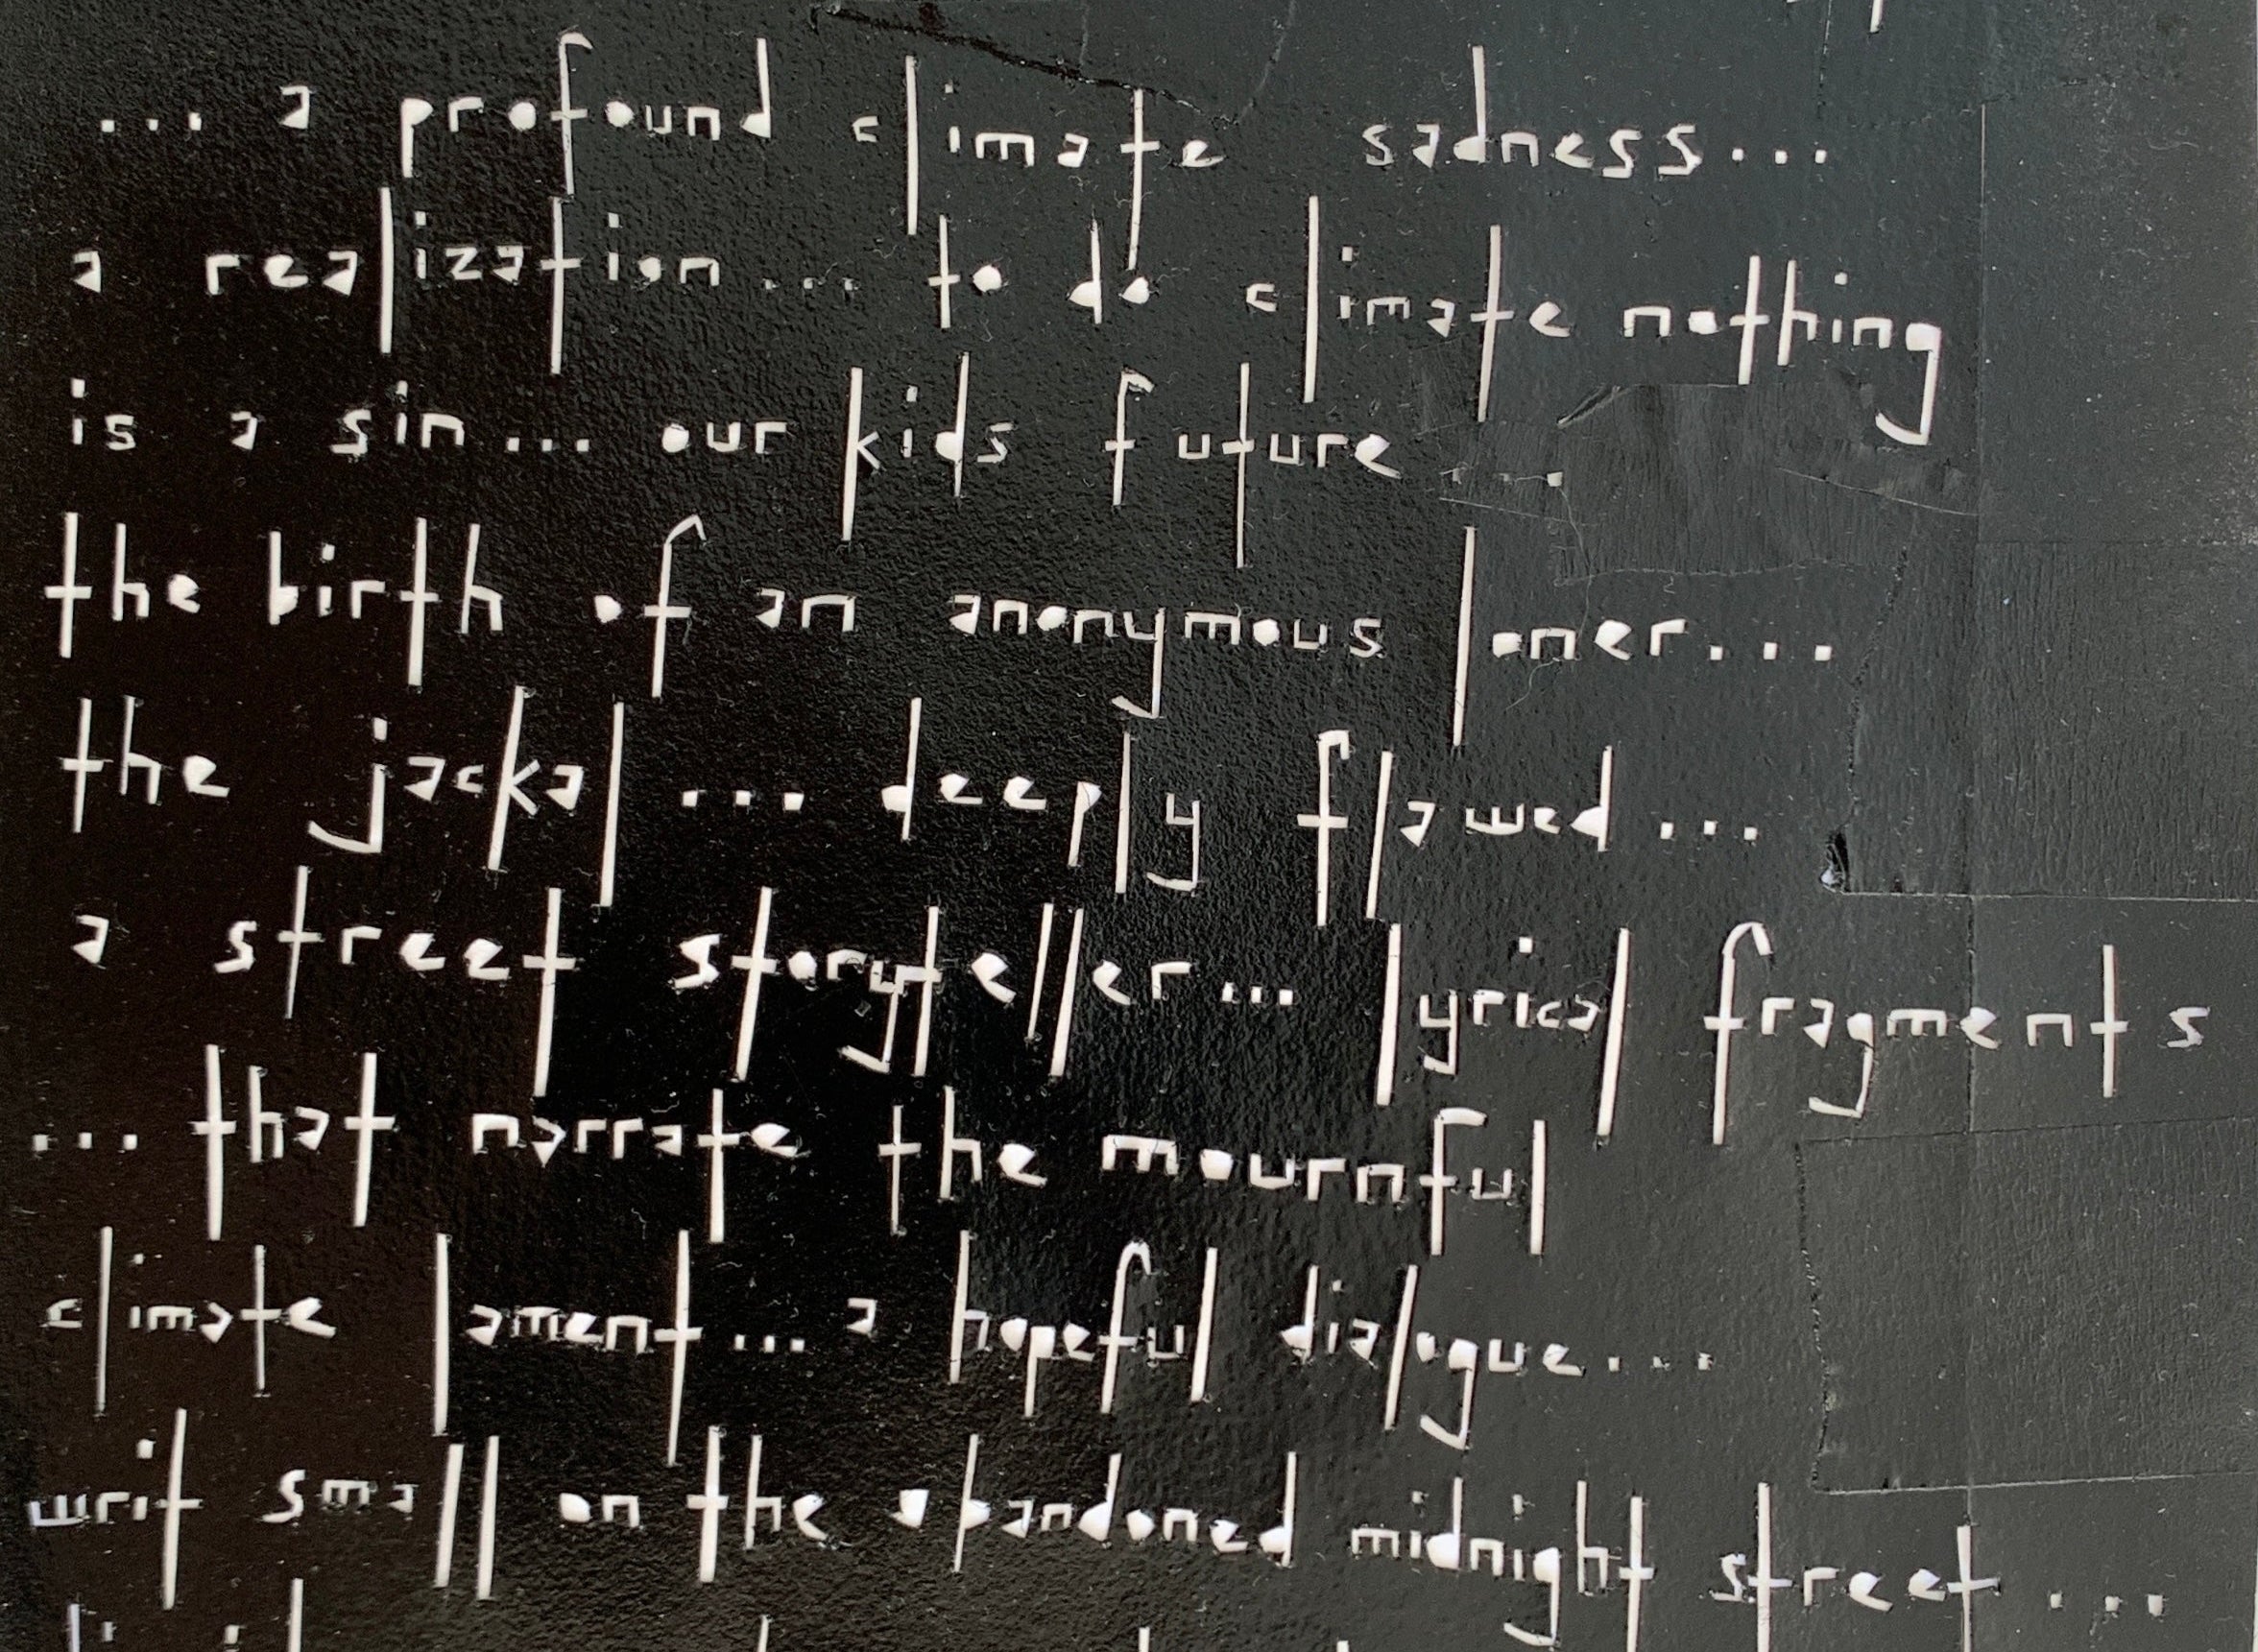 ... a profound climate sadness...
a realization... to do climate nothing
is a sin... our kids future ...
the birth of an anonymous loner...
the jackal ... deeply flawed ...
a street storyteller... lyrical fragments
... that narrate the mournful
climate lament... a hopeful dialogue...
writ small on the abandoned midnight street ...